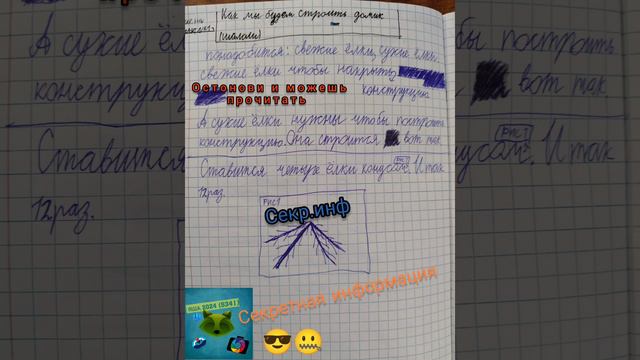 Как мы будем строить домик
(шалаш)
понадобится: свежие ёлки, сухие ёлки.
свежие ёлки чтобы накрыть
конструкцию
Остонови и можешь
прочитать
А сухие ёлки нужны чтобы построить
конструкцию. Она строится вот так
Ставится четыре ёлки конусом. И так
Рис1
12 раз.
Рис1
Секр.инф
ЯША 2024 (534)
Секретная информация